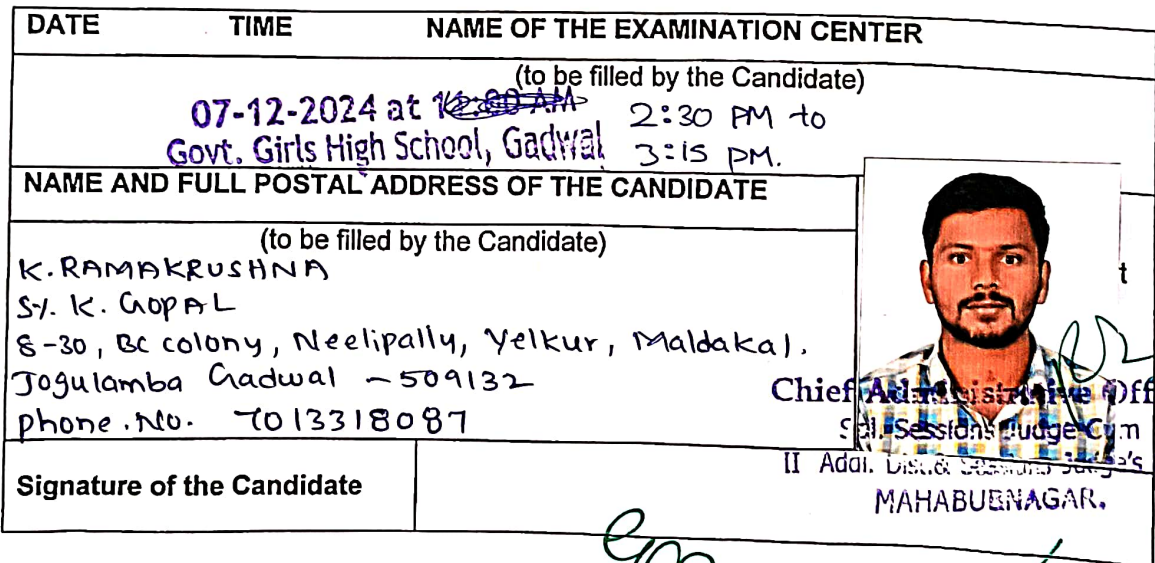 DATE TIME NAME OF THE EXAMINATION CENTER
(to be filled by the Candidate)
07-12-2024 at
2:30 PM to
Govt. Girls High School, Gadwal
3:15 PM.
NAME AND FULL POSTAL ADDRESS OF THE CANDIDATE
(to be filled by the Candidate)
K. RAMAKRUSHNA
S/. K. GOPAL
8-30, BC colony, Neelipally, Yelkur, Maldakal.
Jogulamba Gadwal - 509132
phone. No. 7013318087
Signature of the Candidate
t
Chief Administrative Off
Sessions Judge Cum
II Addl. Dist. & Sessions Judge's
MAHABUBNAGAR.